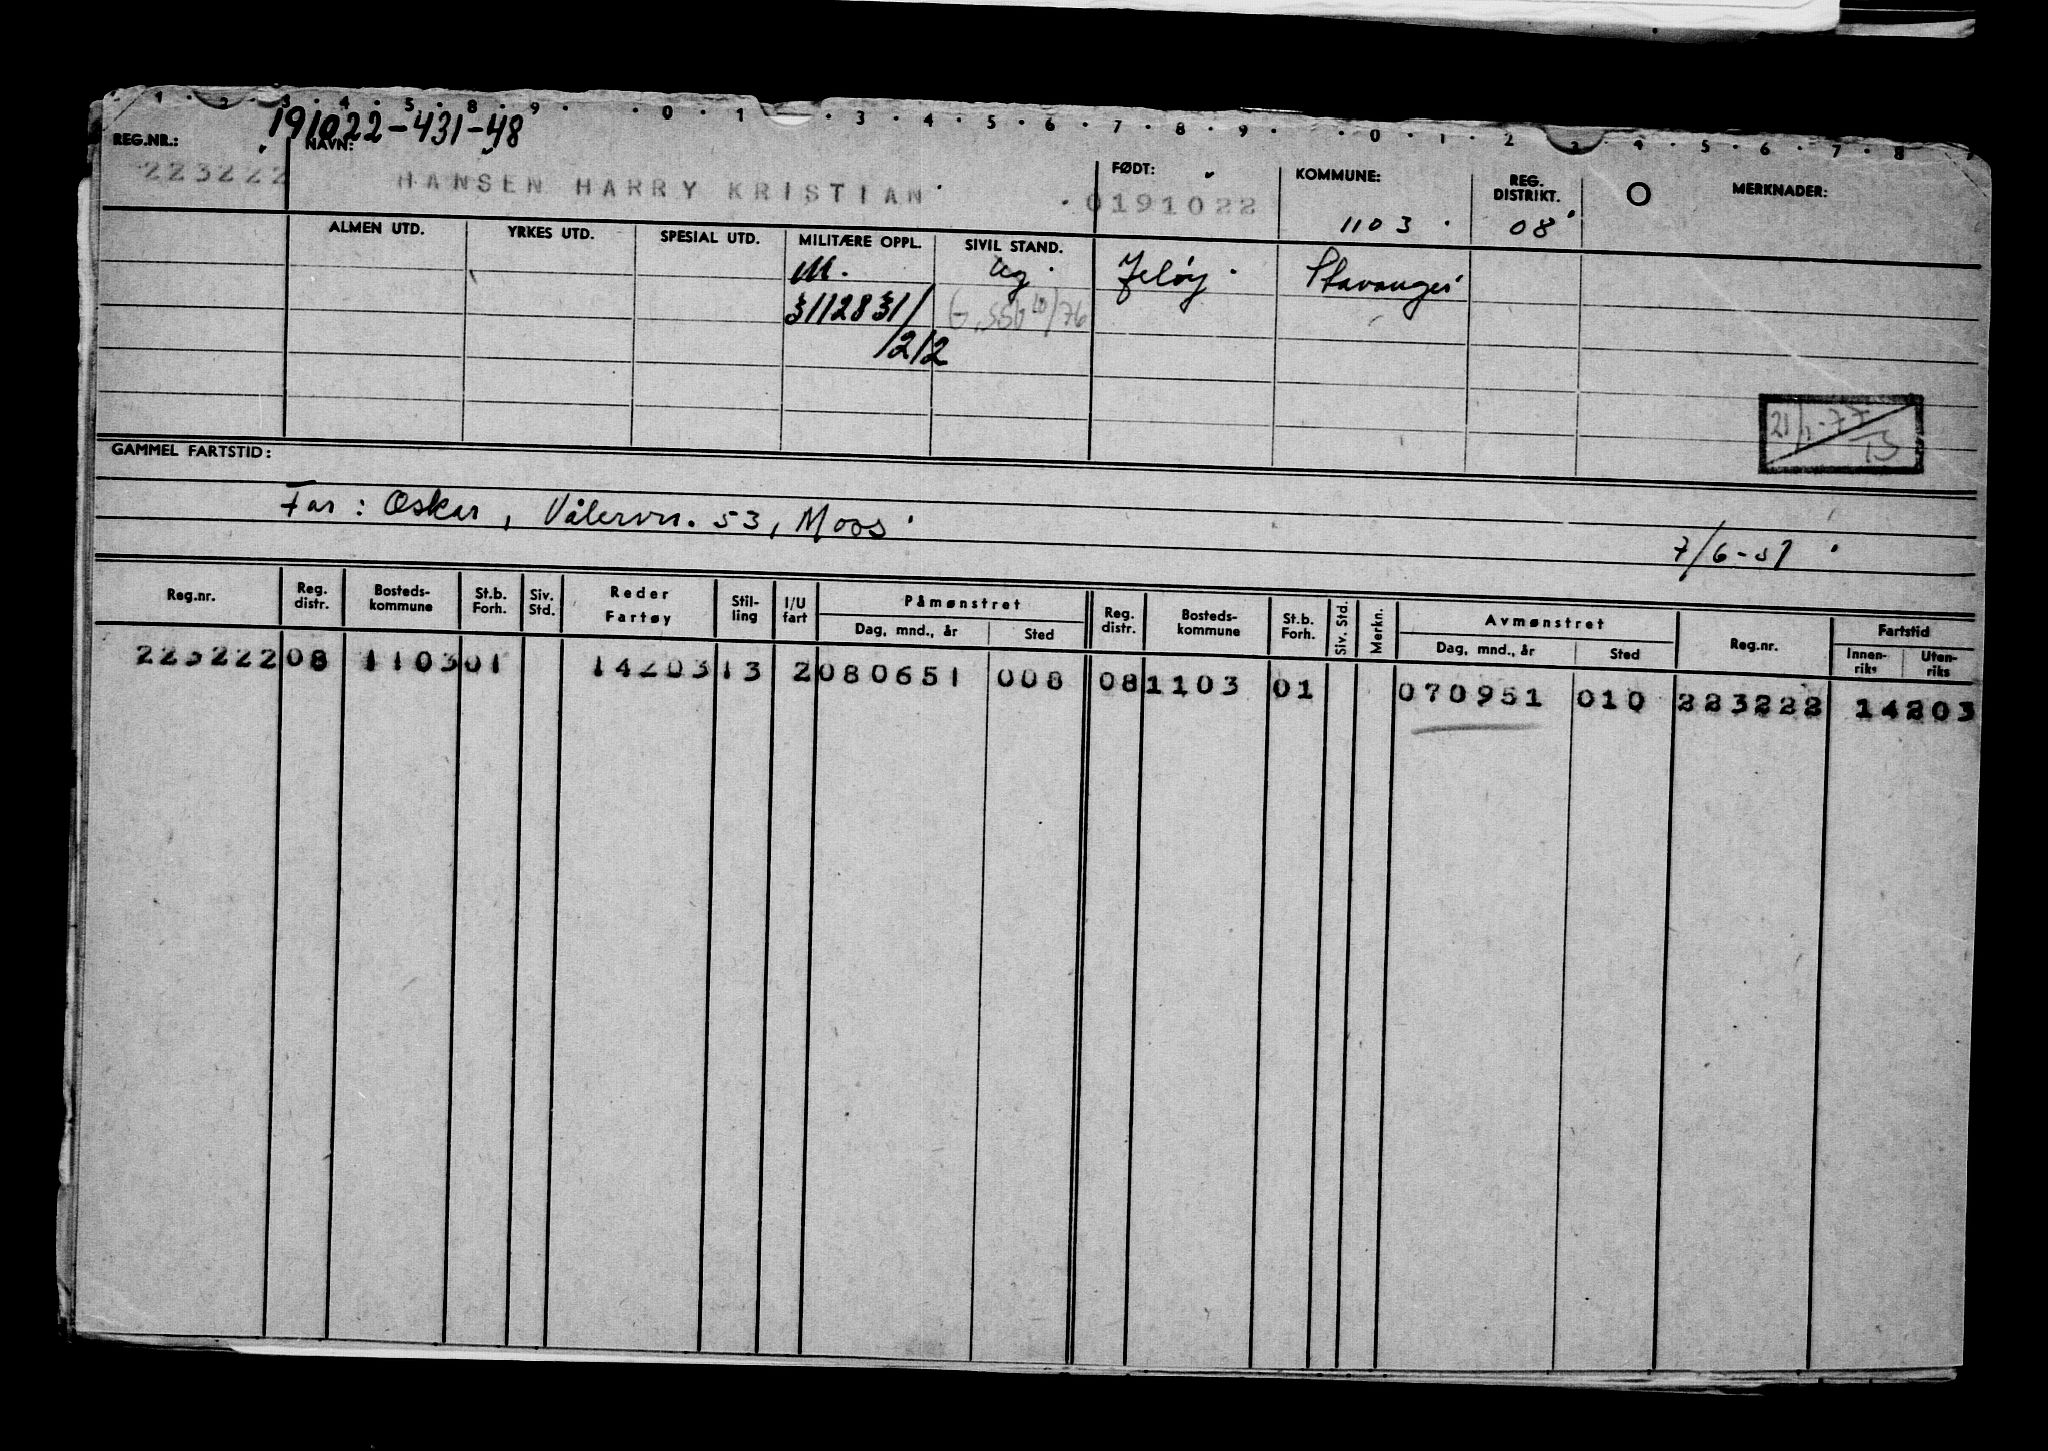 1 · 2 · 3 · 4 · 5 · 8 · 9 · · 0 · 1 · 3 · 4 · 5 · 6 · 7 · 8 · 9 · · 0 · 1 · 2 3 4 · 5 · 6 · 7 · 8
191022-431-48
REG.NR.: NAVN: FØDT: KOMMUNE: REG. DISTRIKT. MERKNADER:
223222 HANSEN HARRY KRISTIAN 0191022 1103 08
ALMEN UTD. YRKES UTD. SPESIAL UTD. MILITÆRE OPPL. SIVIL STAND.
M. ug. Jeløy Stavanger
3112831/
/212
21/1-77
GAMMEL FARTSTID:
Far: Oskar, Vålervn. 53, Moss
7/6-51
Reg.nr. Reg. distr. Bosteds-kommune St.b. Forh. Siv. Std. Reder Fartøy Stil-ling I/U fart Påmønstret Dag, mnd., år Sted Reg. distr. Bosteds-kommune St.b. Forh. Siv. Std. Merkn. Avmønstret Dag, mnd., år Sted Reg.nr. Fartstid Innen-riks Uten-riks
223222 08 1103 01 14203 13 2 080651 008 08 1103 01 070951 010 223222 14203